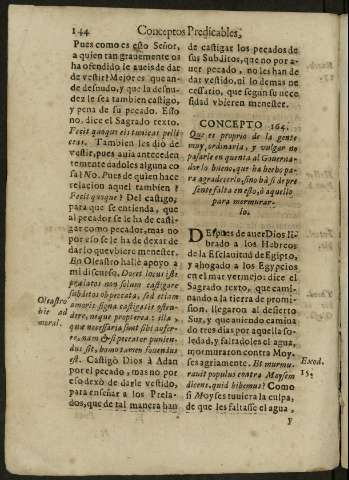 144 Conceptos Predicables,
Pues como es esto Señor,
a quien tan grauemente os
ha ofendido le aueis de dar
de vestir? Mejor es que an-
de desnudo, y que la desnu-
dez le sea tambien castigo,
y pena de su pecado. Esto
no, dice el Sagrado texto.
Fecit quoque eis tunicas pelli-
ceas. Tambien les diò de
vestir, pues auia anteceden
temente dadoles alguna co
sa? No. Pues de quien hace
relacion aquel tambien?
Fecit quoque? Del castigo,
para que se entienda, que
al pecador se le ha de casti-
gar como pecador, mas no
por eso se le ha de dexar de
dar lo que vbiere menester.
En Oleastro hallè apoyo a
mi discurso, Docet locus iste
prælatos non solum castigare
subditos ob peccata, sed etiam
amoris signa castigatis osten-
dere, neque propterea illa,
quæ necessaria sunt sibi aufer-
re, nam & si peccator punien-
dus sit, bono tamen fouendus
est. Castigò Dios à Adan
por el pecado, mas no por
eso dexò de darle vestido,
para enseñar a los Prela-
dos, que de tal manera han
Oleastro
hic ad
moral.
de castigar los pecados de
sus Subditos, que no por a-
uer pecado, no les han de
dar vestido, ni lo demas ne
cessatio, que segun su nece
sidad vbieren menester.
CONCEPTO 164.
Que es proprio de la gente
muy, ordinaria, y vulgar no
pasarle en quenta al Gouerna-
dor lo bueno, que ha hecho pa-
ra agradecerlo, sino bà si de pre
sente falta en esto, ò aquello
para mormurar-
lo.
DEspues de auer Dios li-
brado a los Hebreos
de la Esclauitud de Egipto,
y ahogado a los Egypcios
en el mar vermejo: dice el
Sagrado texto, que cami-
nando a la tierra de promi-
sion, llegaron al desierto
Sur, y que auiendo camina
do tres dias por aquella so-
ledad, y faltadoles el agua,
mormuraron contra Moy-
ses agriamente. Et murmu-
rauit populus contra Moysem
dicens, quid bibemus? Como
si Moyses tuuiera la culpa,
de que les faltasse el agua,
Exod.
15.
y